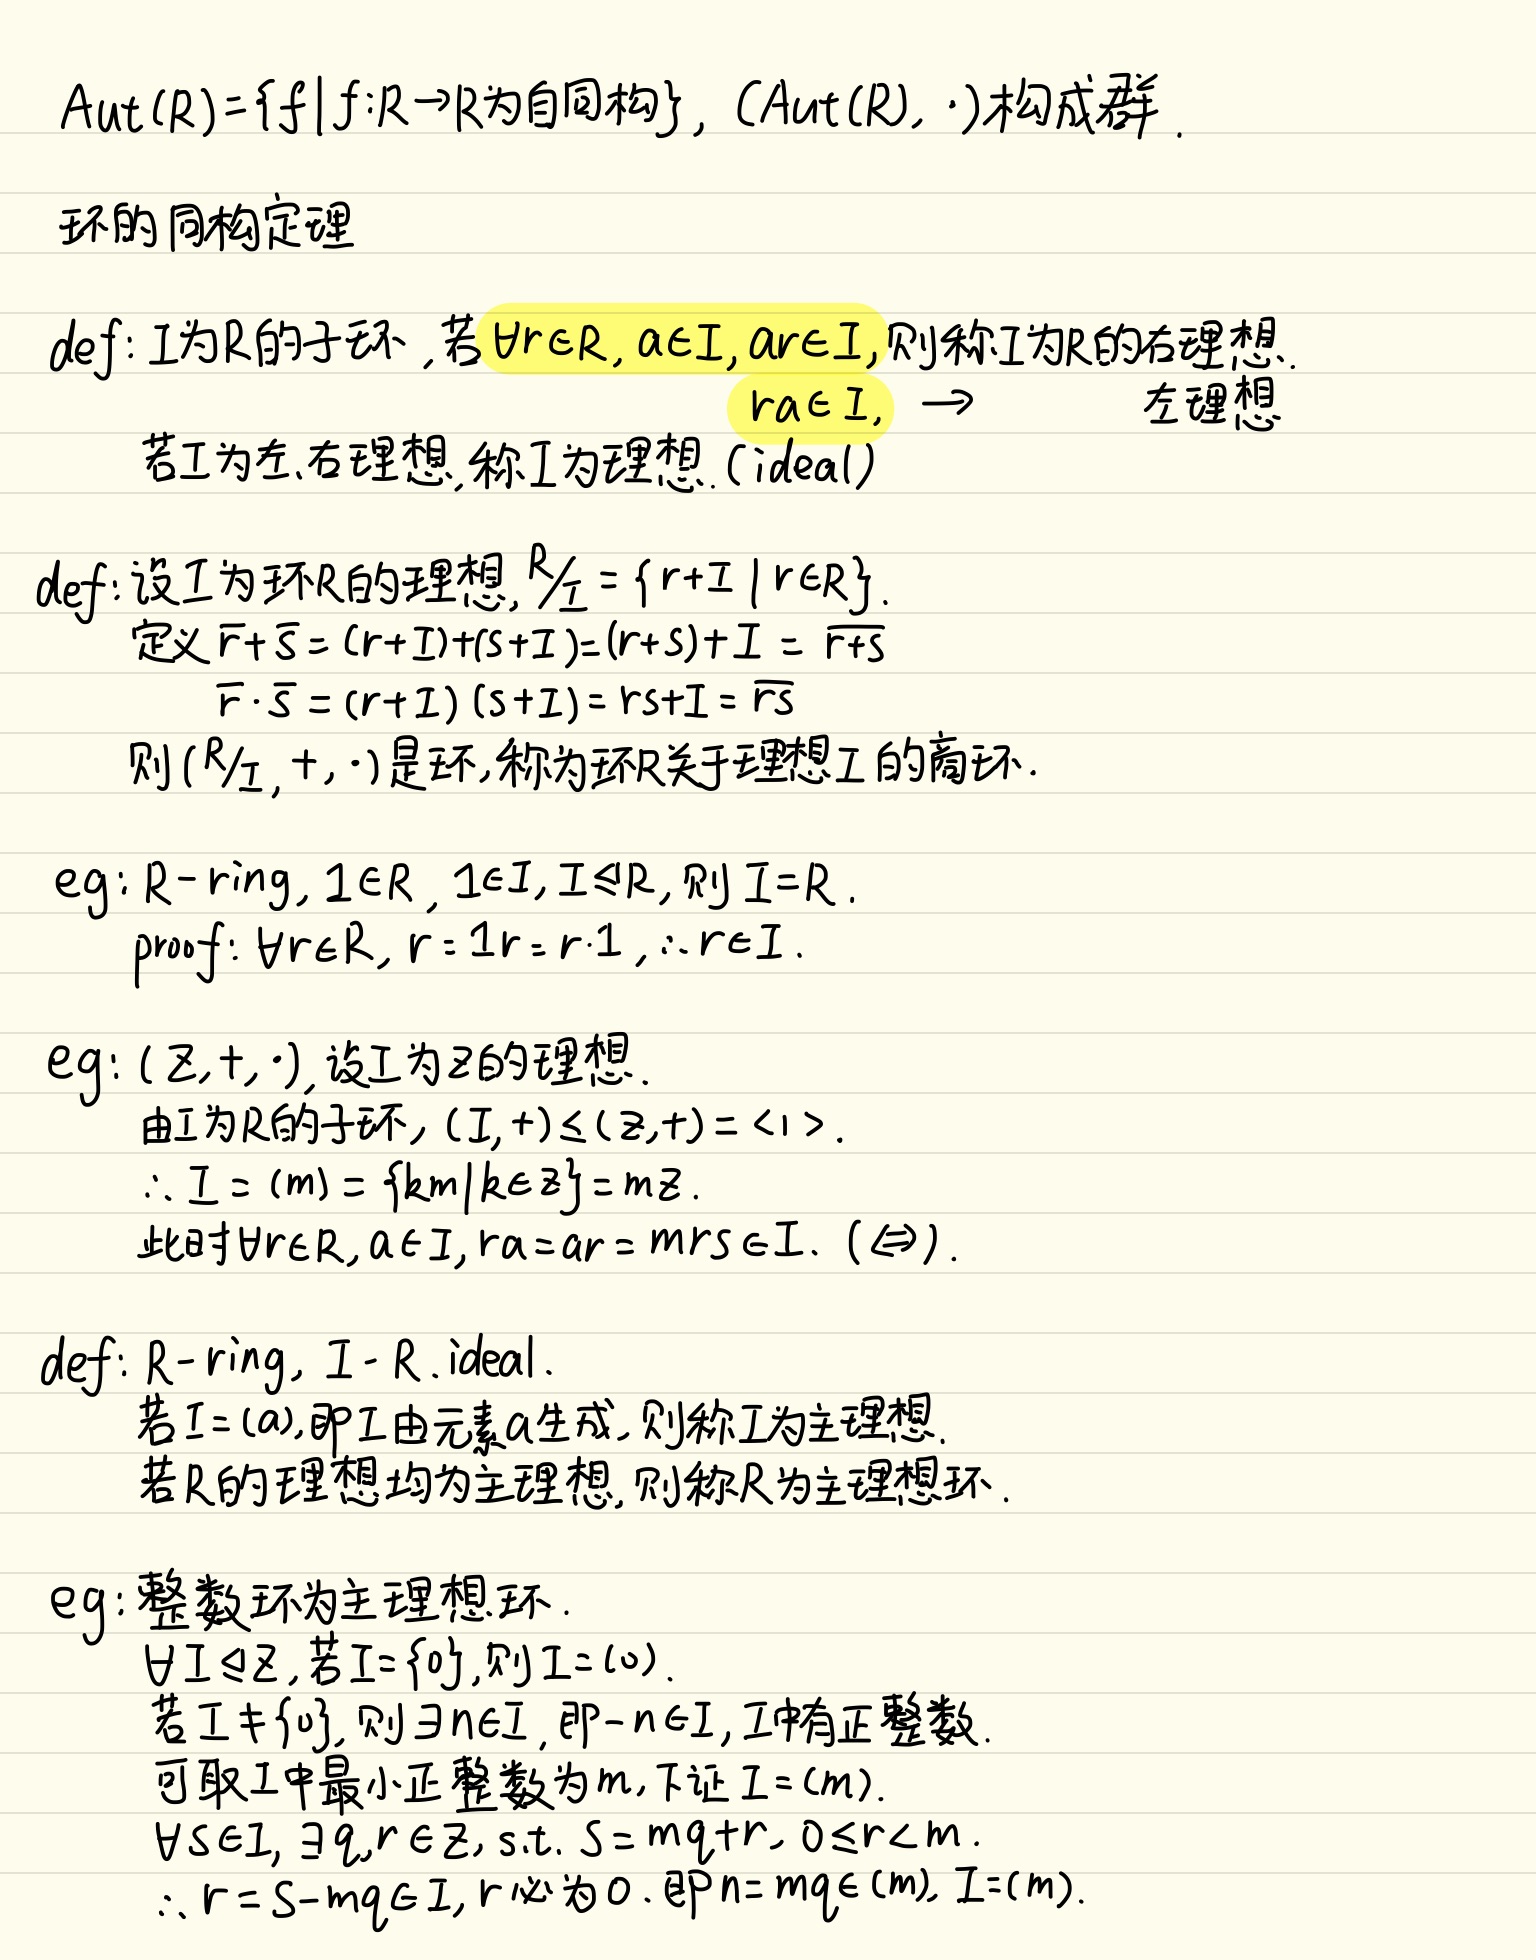 Aut(R)={f|f:R→R为自同构}, (Aut(R), ·)构成群.
环的同构定理
def: I为R的子环,若∀r∈R, a∈I, ar∈I,则称I为R的右理想.
ra∈I, → 左理想
若I为左、右理想,称I为理想.(ideal)
def:设I为环R的理想, R/I = {r+I | r∈R}.
定义 r̅+s̅ = (r+I)+(s+I)=(r+s)+I = \overline{r+s}
r̅·s̅ = (r+I)(s+I)=rs+I=\overline{rs}
则(R/I, +, ·)是环,称为环R关于理想I的商环.
eg: R-ring, 1∈R, 1∈I, I⊴R, 则 I=R.
proof: ∀r∈R, r=1r=r·1, ∴r∈I.
eg: (Z,+,·),设I为Z的理想.
由I为R的子环, (I,+)≤(Z,+)=<1>.
∴ I = (m) = {km|k∈Z}=mZ.
此时∀r∈R, a∈I, ra=ar=mrs∈I. (⇔).
def: R-ring, I-R.ideal.
若I=(a),即I由元素a生成,则称I为主理想.
若R的理想均为主理想,则称R为主理想环.
eg:整数环为主理想环.
∀I⊴Z,若I={0},则I=(0).
若I≠{0},则∃n∈I,即-n∈I,I中有正整数.
可取I中最小正整数为m,下证I=(m).
∀s∈I, ∃q,r∈Z, s.t. S=mq+r, 0≤r<m.
∴ r=S-mq∈I, r必为0.即n=mq∈(m), I=(m).